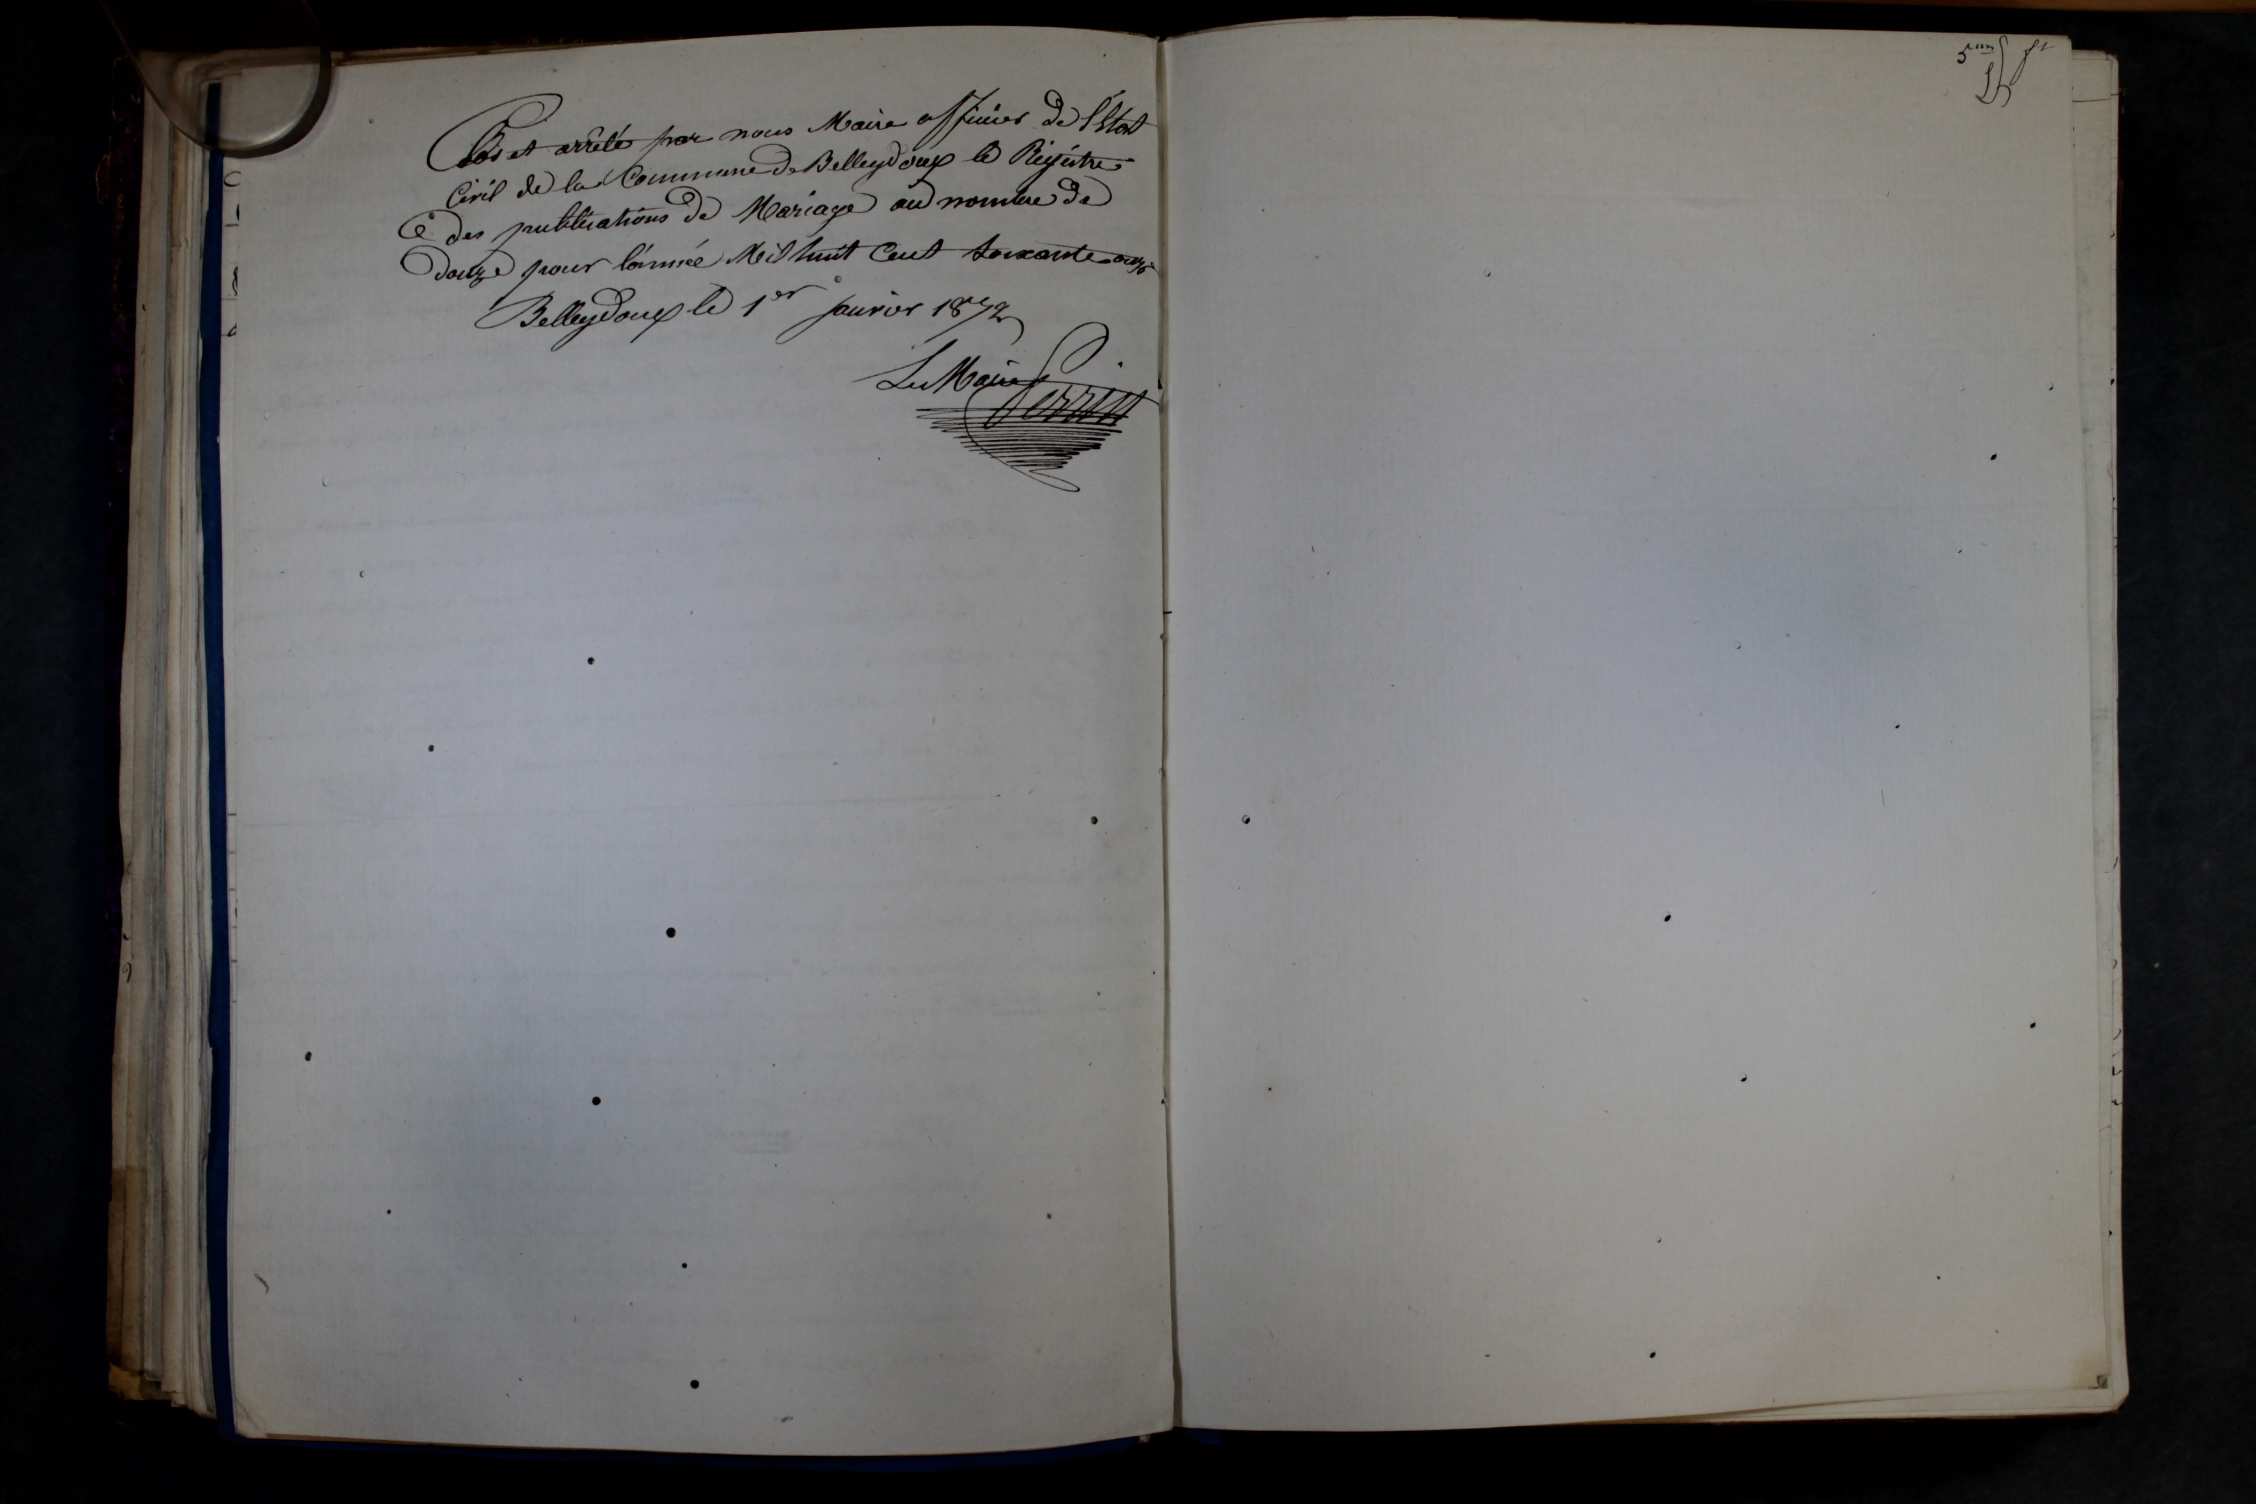 Clos et arrêté par nous Maire officier de l'Etat
Civil de la Commune de Belleydoux le Régistre
des publications de Mariage au nombre de
douze pour l'année Mil huit Cent soixante onze
Belleydoux le 1er Janvier 1872
Le Maire Perrin
5me ft